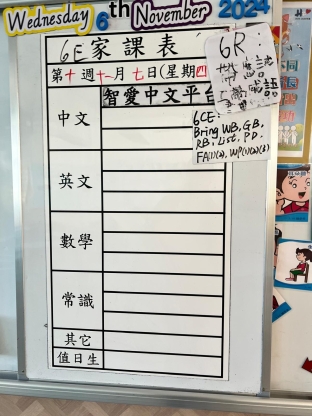 Wednesday 6th November 2024
6E家課表
第十週十一月七日(星期四
智愛中文平台
6R
6CE:
Bring WB, GB,
RB, List, PD.
中文
英文
數學
常識
其它
值日生